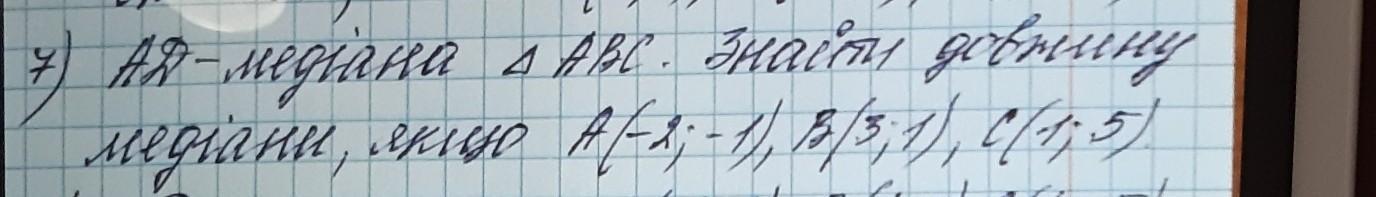 7) АD-медіана △ АВС. Знайти довжину
медіани, якщо А(-2;-1), В(3;1), С(1;5)